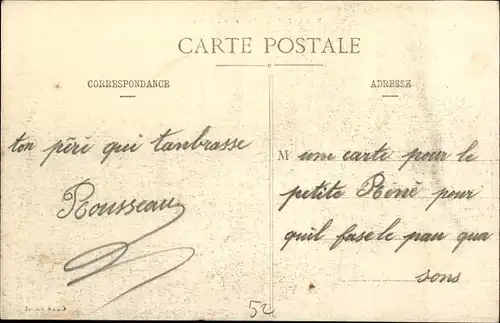 CARTE POSTALE
CORRESPONDANCE
ADRESSE
ton père qui tanbrasse
Rousseau
M une carte pour le
petite Réné pour
quil fase le pau qua
sons
52